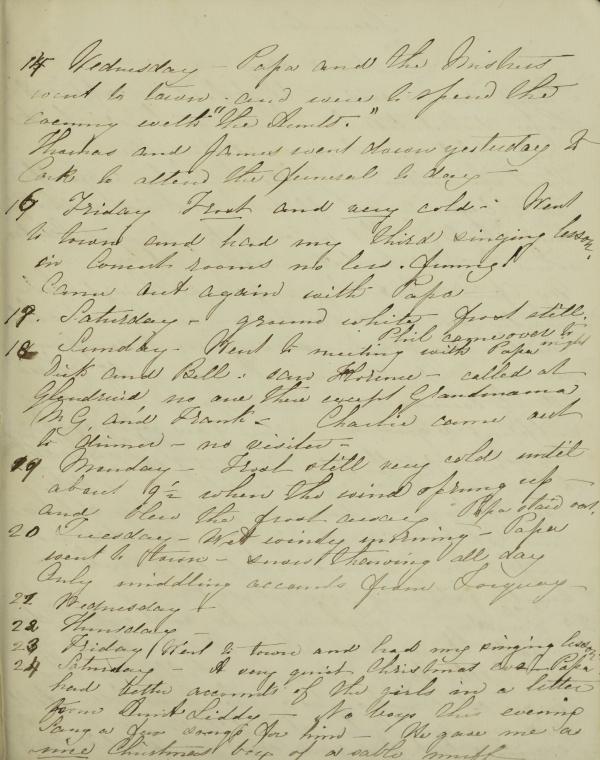 14 Wednesday - Papa and the
went to town - and were to spend the
evening with "the Aunts."
Thomas and James went down yesterday to
Cork to attend the funeral to day -
16 Friday Frost and very cold - Went
to town and had my third singing lesson
in Concert rooms no less. funny!
Came out again with Papa
17. Saturday - ground white frost still.
Phil came over to night
18 Sunday - Went to meeting with Papa
Dick and Bell. saw Florence - called at
no one there except Grandmama
M G, and Frank - Charlie came out
to dinner - no visitor -
19 Monday - Frost still very cold until
about 9½ when the wind sprung up -
and blew the frost away Papa staid out.
20 Tuesday - Wet windy morning - Papa
went to town - snow thawing all day
Only middling accounts from Torquay
21. Wednesday -
22 Thursday -
23 Friday Went to town and had my singing lesson
24 Saturday - A very quiet Christmas eve - Papa
had better accounts of the girls in a letter
from Aunt Liddy - No boys this evening
Sang a few songs for him - He gave me a
nice Christmas box of a sable muff